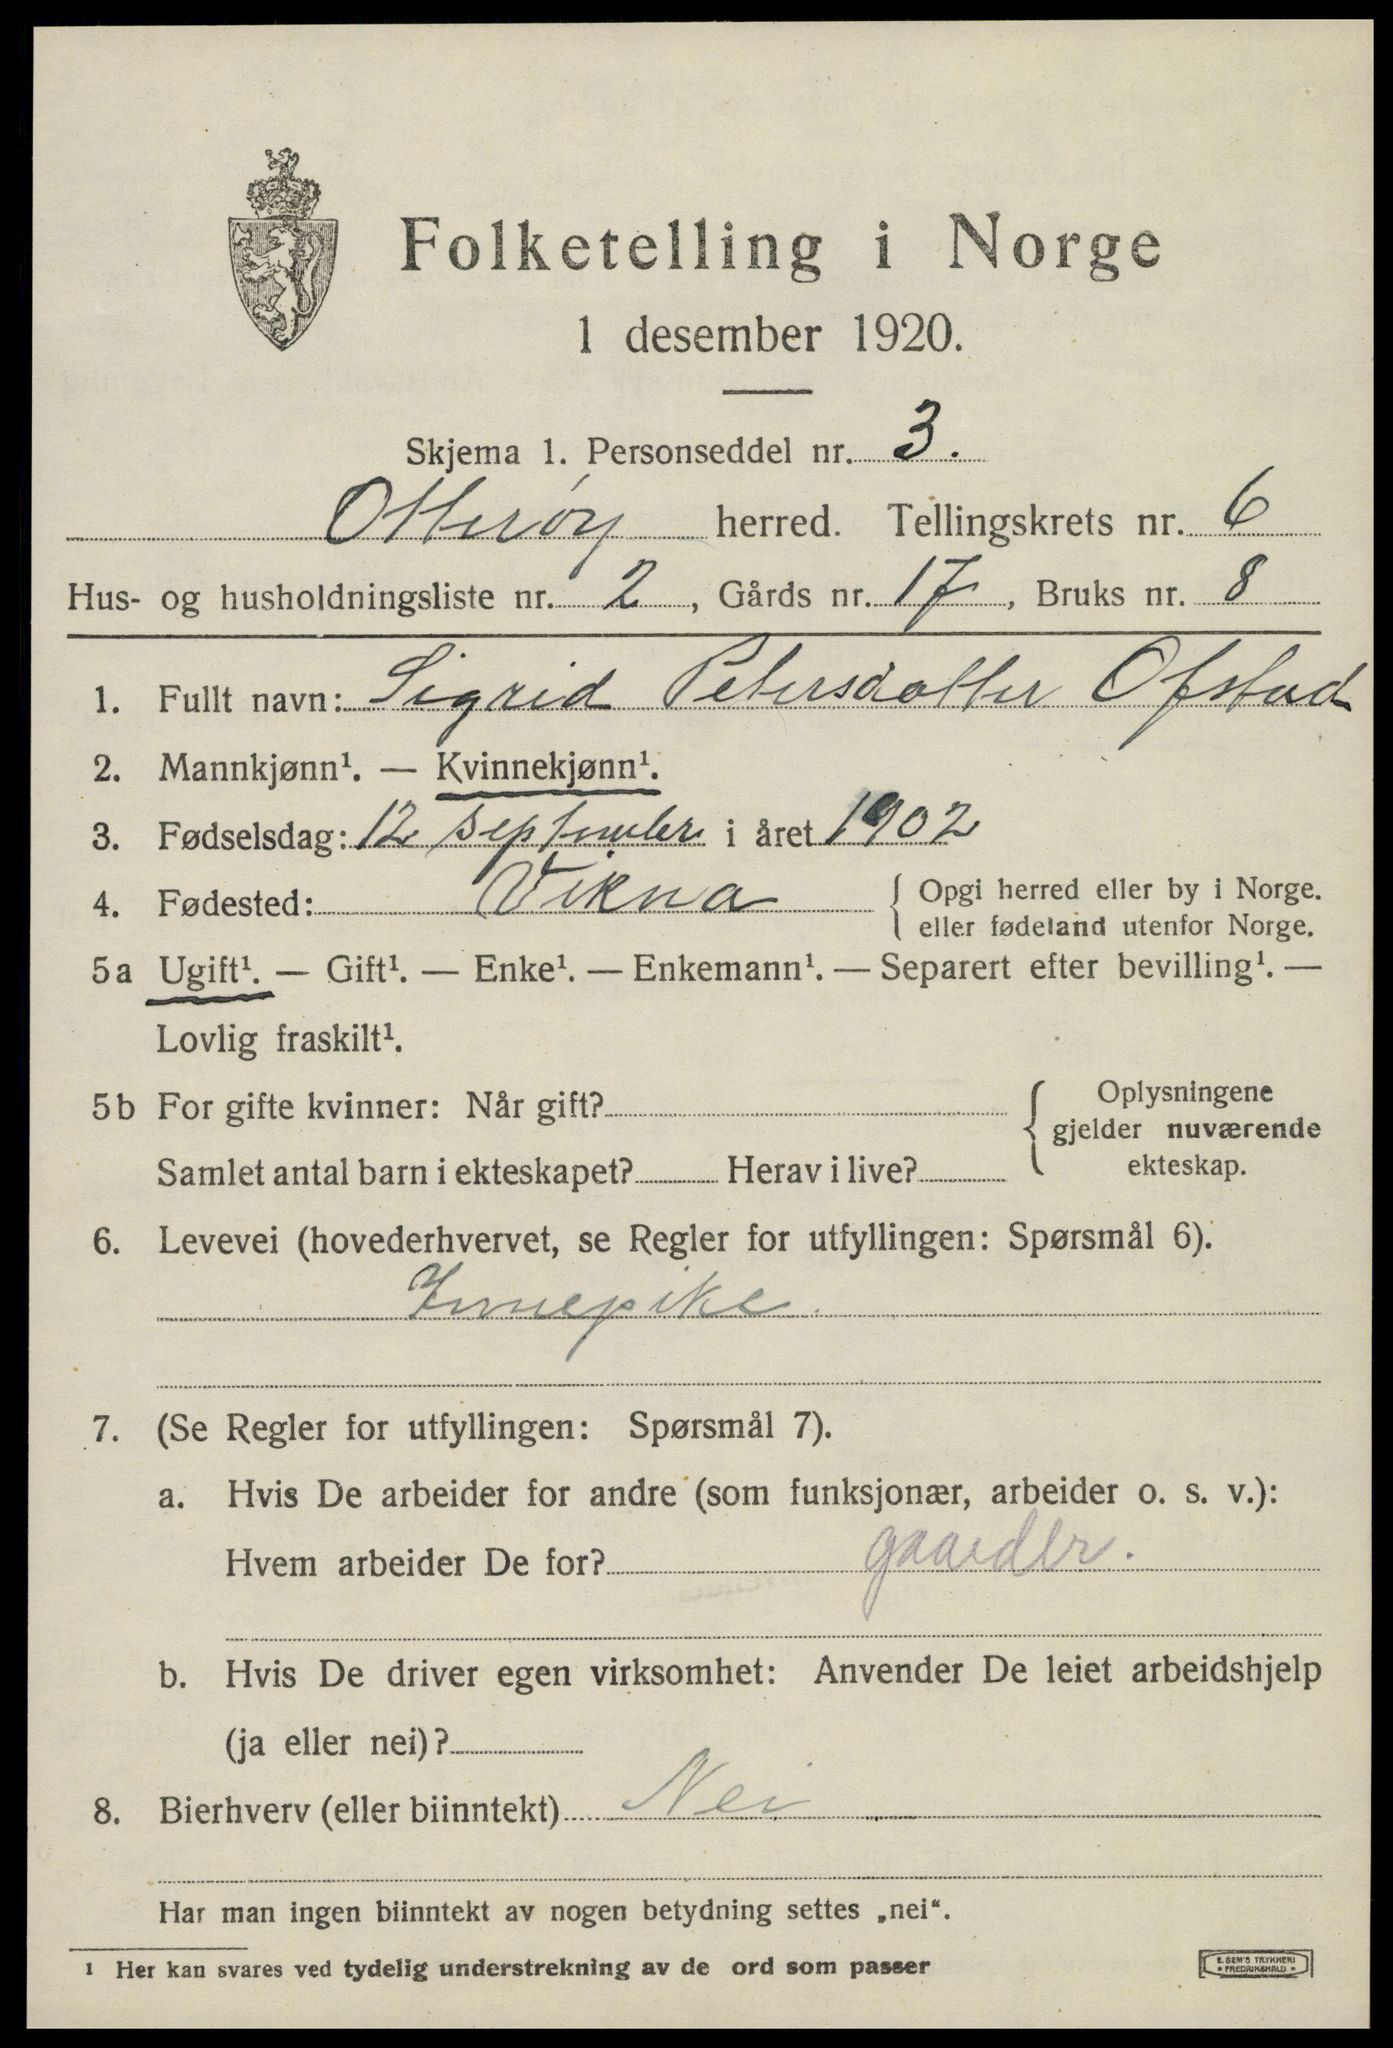 Folketelling i Norge
1 desember 1920.
Skjema 1. Personseddel nr. 3.
Otterøy herred. Tellingskrets nr. 6
Hus- og husholdningsliste nr. 2, Gårds nr. 17, Bruks nr. 8
1. Fullt navn: Sigrid Petersdatter Ofstad
2. Mannkjønn¹. — Kvinnekjønn¹.
3. Fødselsdag: 12 september i året 1902
4. Fødested: Vikna { Opgi herred eller by i Norge.
eller fødeland utenfor Norge.
5a Ugift¹. — Gift¹. — Enke¹. — Enkemann¹. — Separert efter bevilling¹. —
Lovlig fraskilt¹.
5b For gifte kvinner: Når gift?
Samlet antal barn i ekteskapet? Herav i live?
{ Oplysningene
gjelder nuværende
ekteskap.
6. Levevei (hovederhvervet, se Regler for utfyllingen: Spørsmål 6).
Innepike.
7. (Se Regler for utfyllingen: Spørsmål 7).
a. Hvis De arbeider for andre (som funksjonær, arbeider o. s. v.):
Hvem arbeider De for? gaardbr.
b. Hvis De driver egen virksomhet: Anvender De leiet arbeidshjelp
(ja eller nei)?
8. Bierhverv (eller biinntekt) Nei
Har man ingen biinntekt av nogen betydning settes „nei“.
¹ Her kan svares ved tydelig understrekning av de ord som passer
E. SEM'S TRYKKERI
• FREDRIKSHALD •